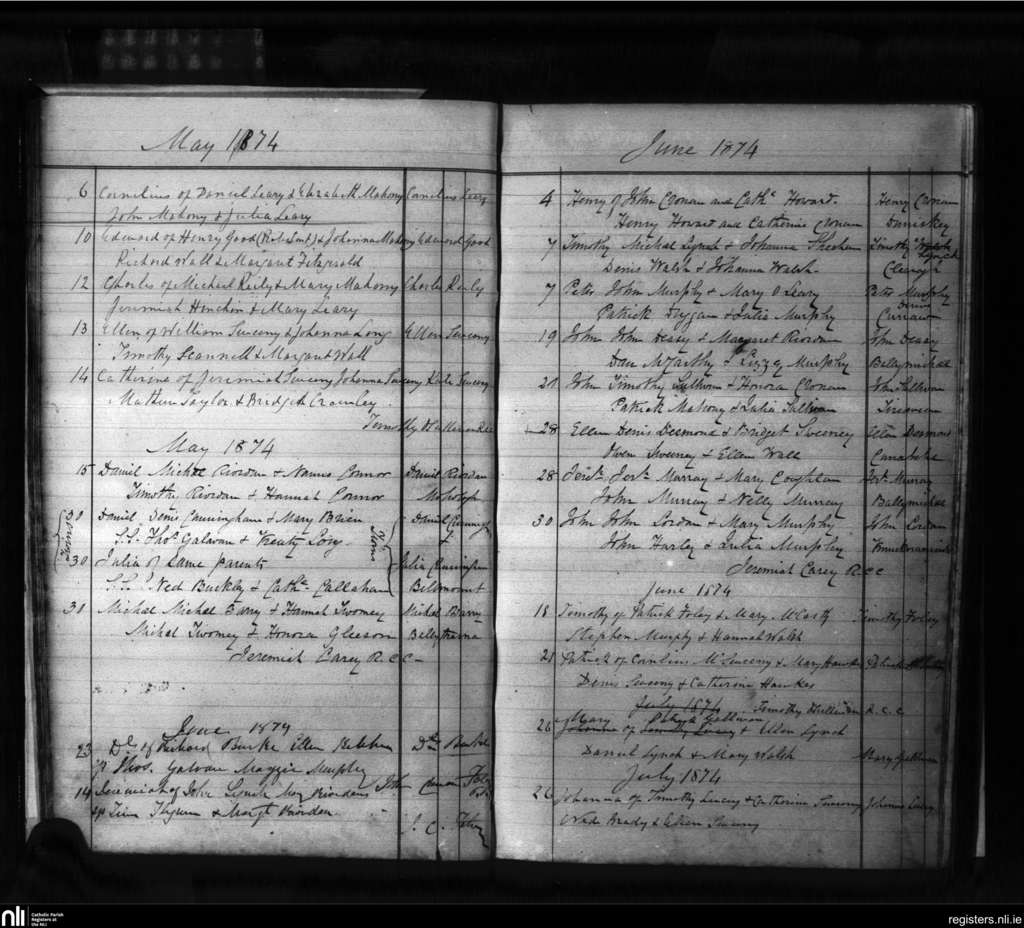 May 1874
6 Cornelius of Daniel Leary & Elizabeth Mahony Cornelius Leary
John Mahony & Julia Leary
10 Edward of Henry Good & Johanna Mahony Edward Good
Richard Wall & Margaret Fitzgerald
12 Charles of Michael Reily & Mary Mahony Charles Reily
Jeremiah & Mary Leary
13 Ellen of William Sweeny & Johanna Long Ellen Sweeny
Timothy Scannell & Margaret Wall
14 Catherine of Jeremiah Sweeny Johanna Kate Sweeny
Mathew Taylor & Bridget Crowley
Timothy
May 1874
15 Daniel Michael Riordan & Connor Daniel Riordan
Timothy Riordan & Hannah Connor
Twins
30 Daniel Denis Cunningham & Mary Brien Daniel
SS. Thos Galavan & Long
Twins
30 Julia of Same parents Julia Cunningham
SS. Ned Buckley & Cathe Callaghan Bellmount
31 Michael Michael Barry & Hannah Twomey Michael Barry
Michael Twomey & Honora Gleeson
Jeremiah Carey R C C
June 1874
23 of Richard Burke Ellen Burke
Thos. Galavan Maggie Murphy
14 Jeremiah of John Lynch Riordan
Tim & Margt Riordan
J. C.
June 1874
4 Henry of John Cronan and Cathe Howard Henry Cronan
Henry Howard and Catherine Cronan
7 Timothy Michael Lynch & Johanna Sheehan Timothy Walsh Lynch
Denis Walsh & Johanna Walsh Clearagh
7 Peter John Murphy & Mary O Leary Peter Murphy
Patrick & Julia Murphy
19 John John Deasy & Margaret Riordan John Deasy
Dan McCarthy & Lizzy Murphy Ballymichael
21 John Timothy Sullivan & Honora Cronan John Sullivan
Patrick Mahony & Julia Sullivan
28 Ellen Denis Desmond & Bridget Sweeney Ellen Desmond
Owen Sweeney & Ellen Wall
28 Jerh. Jerh. Murray & Mary Coughlan Jerh. Murray
John Murray & Nelly Murray Ballymichael
30 John John Lordan & Mary Murphy John Lordan
John Hurley & Julia Murphy
Jeremiah Carey R C C
June 1874
18 Timothy of Patrick Foley & Mary McCarthy Timothy Foley
Stephen Murphy & Hannah Walsh
21 Patrick of Cornelius McSweeny & Mary Hawkes Patrick
Denis Sweeny & Catherine Hawkes
July 1874 Timothy R. C. C
26 Mary Patrick Sullivan
Johanna of Timothy Lucey & Ellen Lynch
Daniel Lynch & Mary Walsh Mary Sullivan
July 1874
26 Johanna of Timothy Lucey & Catherine Sweeny Johanna Lucey
Ned Brady & Ellen Sweeny
nli
Catholic Parish
Registers at
the NLI
registers.nli.ie